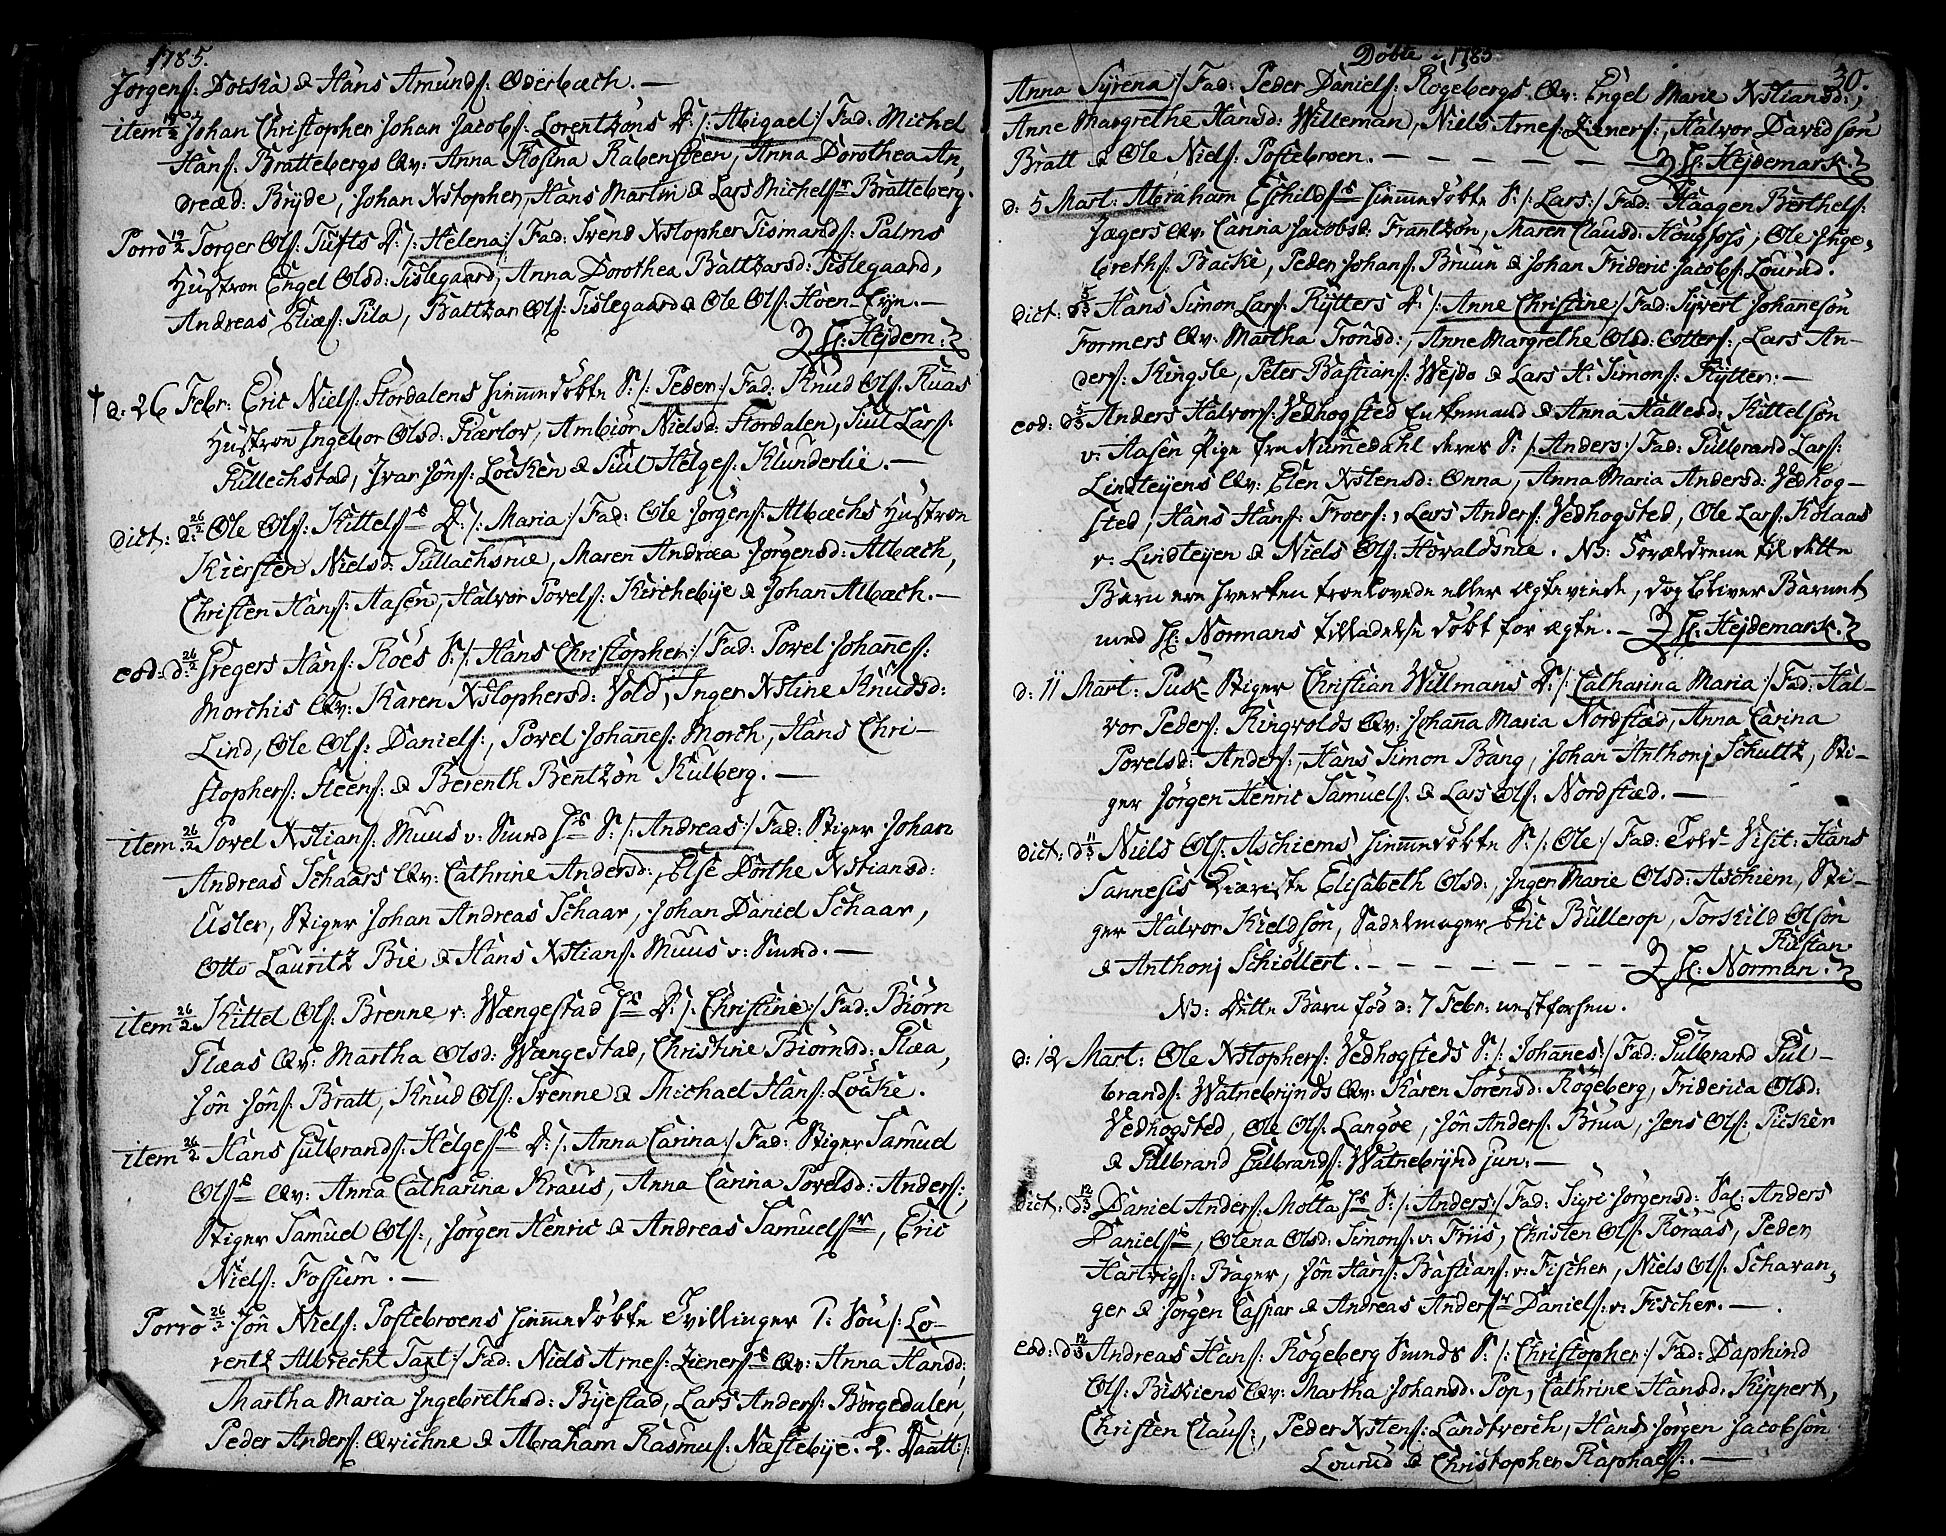 1785.
Jörgens: Dotska & Hans Amunds: Oderbæch. —
item 19/2 Johan Christopher Johan Jacobs: Lorentzöns D: /: Abigael :/ Fad: Michel
Hans: Brattebergs Qv: Anna Rosina Rabensteen, Anna Dorothea An,
dreæd: Bryde, Johan Xstopher, Hans Martin & Lars Michelsr Bratteberg.
Porrò 19/2 Torger Ols: Tufts D: /: Helena :/ Fad: Svend Xstopher Tismands: Palms
Hustroe Engel Olsd: Tislegaard, Anna Dorothea Baltzarsd: Tislegaard,
Andreas Eliæs: Pila, Baltzar Ols: Tislegaard & Ole Ols: Hoen-Eyn. —
H: Hejdem:
† d: 26 Febr: Eric Niels: Stordalens hjemmedøbte S: /: Peder :/ Fad: Knud Ols: Ruas
Hustroe Ingebor Olsd: Kiærlov, Ambiör Nielsd: Stordalen, Siul Lars:
Gullechstad, Ivar Jöns: Löcken & Siul Helges: Klunderlie. —
dict: d: 26/2 Ole Ols: Kittelss D: /: Maria :/ Fad: Ole Jörgens: Albæchs Hustroe
Kiersten Nielsd: Gullachsrue, Maren Andræa Jörgensd: Albæch,
Christen Hans: Aasen, Halvor Povels: Kirchebye & Johan Albæch. —
eod: d: 26/2 Gregers Hans: Roes S: /: Hans Christopher :/ Fad: Povel Johannes:
Morchis Qv: Karen Xstophersd: Vold, Inger Xstine Knudsd:
Lind, Ole Ols: Daniels:, Povel Johannes: Morch, Hans Chri-
stophers: Steens: & Berenth Bentzön Kulberg. —
item: 26/2 Povel Xstians: Muus v: Smed hs S: /: Andreas :/ Fad: Stiger Johan
Andreas Schaars Qv: Cathrine Andersd:, Else Dorthe Xstiansd:
Usler, Stiger Johan Andreas Schaar, Johan Daniel Schaar,
Otto Lauritz Bie & Hans Xstians: Muus v: Smed. —
item 26/2 Kittel Ols: Brenne v: Wængestad hs D: /: Christine :/ Fad: Biörn
Plæas Qv: Martha Olsd: Wængestad, Christine Biörnsd: Plæa,
Jön Jöns: Bratt, Knud Ols: Svenne & Michael Hans: Löcke.
item 26/2 Hans Gulbrands: Helgess D: /: Anna Carina :/ Fad: Stiger Samuel
Olss Qv: Anna Catharina Kraus, Anna Carina Povelsd: Anders:,
Stiger Samuel Ols:, Jörgen Henric & Andreas Samuelsr, Eric
Niels: Fossum. —
Porrò 26/2 Jön Niels: Postebroens hjemmedøbte Tvillinger 1. Sön /: Lo-
rentz Albrecht Taxt :/ Fad: Niels Arnes: Zienerss Qv: Anna Hansd:,
Martha Maria Ingebrethsd: Byestad, Lars Anders: Börgedalen,
Peder Anders: Qvichne & Abraham Rasmus: Næstebye. 2. Daatt: /:
Döbte i 1785
30.
Anna Syrena :/ Fad: Peder Daniels: Rögebergs Qv: Engel Marie Xstiansd:,
Anne Margrethe Hansd: Willeman, Niels Arnes: Zieners:, Halvor Davidsön
Bratt & Ole Niels: Postebroen. — — — — — H: Hejdemark.
d: 5 Mart: Abraham Eschildss hjemmedøbte S: /: Lars :/ Fad: Haagen Berthels:
Jægers Qv: Carina Jacobsd: Frantzön, Maren Clausd: Hougfos, Ole Inge,
breths: Backe, Peder Johans: Bruun & Johan Frideric Jacobs: Lourud.
dict: d 5/3 Hans Simon Lars: Rytters D: /: Anne Christine :/ Fad: Syvert Johannesön
Formers Qv: Martha Tronsd:, Anne Margrethe Olsd: Otters:, Lars An-
ders: Kingsle, Peter Bastians: Wejdo & Lars H: Simons: Rytter: —
eod: d 5/3 Anders Halvors: Vedhogsted Enkemand & Anna Hallesd: Kittelsön
v: Aasen Pige fra Nummedahl deres S: /: Anders :/ Fad: Gulbrand Lars:
Lindteyens Qv: Elen Xstensd: Onna, Anna Maria Andersd: Vedhog-
sted, Hans Hans: Froers:, Lars Anders: Vedhogsted, Ole Lars: Kolaas
v: Lindteyen & Niels Ols: Hovaldsrue. NB: Forældrene til dette
Barn ere hverken troelovede eller ægteviede, dog bliver Barnet
med H: Normans tilladelse döbt for ægte. — H: Hejdemark.
d: 11 Mart: Puk-Stiger Christian Willmans D: /: Catharina Maria :/ Fad: Hal-
vor Peders: Ringvolds Qv: Johanna Maria Nordstæd, Anna Carina
Povelsd: Anders:, Hans Simon Bang, Johan Anthonj Schultz, Sti-
ger Jörgen Henric Samuels: & Lars Ols: Nordstæd. —
dict: d 11/3 Niels Ols: Aschiems hjemmedøbte S: /: Ole :/ Fad: Told-Visit: Hans
Sannesis Kiæriste Elisabeth Olsd:, Inger Marie Olsd: Aschiem, Sti-
ger Halvor Kieldsön, Sadelmager Eric Bullerop, Torskild Olsön
Rustan
& Anthonj Schiöllert. — — — — — — H: Norman.
NB: Dette Barn föd d: 7 Febr: nestforhen.
d: 12 Mart: Ole Xstophers: Vedhogsteds S: /: Johannes :/ Fad: Gulbrand Gul-
brands: Watnebrynds Qv: Karen Sörensd: Rögeberg, Friderica Olsd:
Vedhogsted, Ole Ols: Langöe, Jön Anders: Brua, Jens Ols: Sicker
& Gulbrand Gulbrands: Watnebrynd jun. —
dict: d 12/3 Daniel Anders: Motta hs S: /: Anders :/ Fad: Sigri Jörgensd: Sal: Anders
Danielss, Olena Olsd: Simons: v: Friis, Christen Ols: Roraas, Peder
Hartvigs: Bager, Jön Hans: Bastians: v: Fischer, Niels Ols: Schavan,
ger & Jörgen Caspar & Andreas Andersr Daniels: v: Fischer. —
eod: d 12/3 Andreas Hans: Rögeberg Smeds S: /: Christopher :/ Fad: Daphind
Ols: Biskiens Qv: Martha Johansd: Pop, Cathrine Hansd: Kippert,
Christen Claus:, Peder Xstens: Landtverch, Hans Jörgen Jacobsön
Lourud & Christopher Raphaels:. —